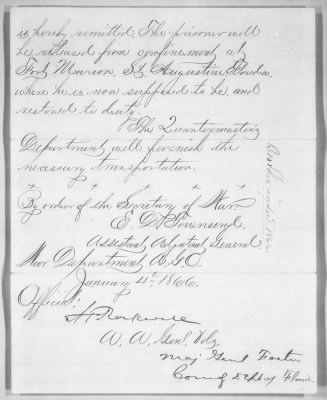 is hereby remitted. The prisoner will
be released from confinement at
Fort Marion, St. Augustine, Florida,
where he is now supposed to be, and
restored to duty.
The Quartermasters
Department will furnish the
necessary transportation.
+ + + + +
By order of the Secretary of War
E. D. Townsend,
Assistant Adjutant General
War Department A.G.O.
January 4th 1866.
Official:
A. A. Genl. Vols
Maj Genl Foster
Comg Dept of Florida